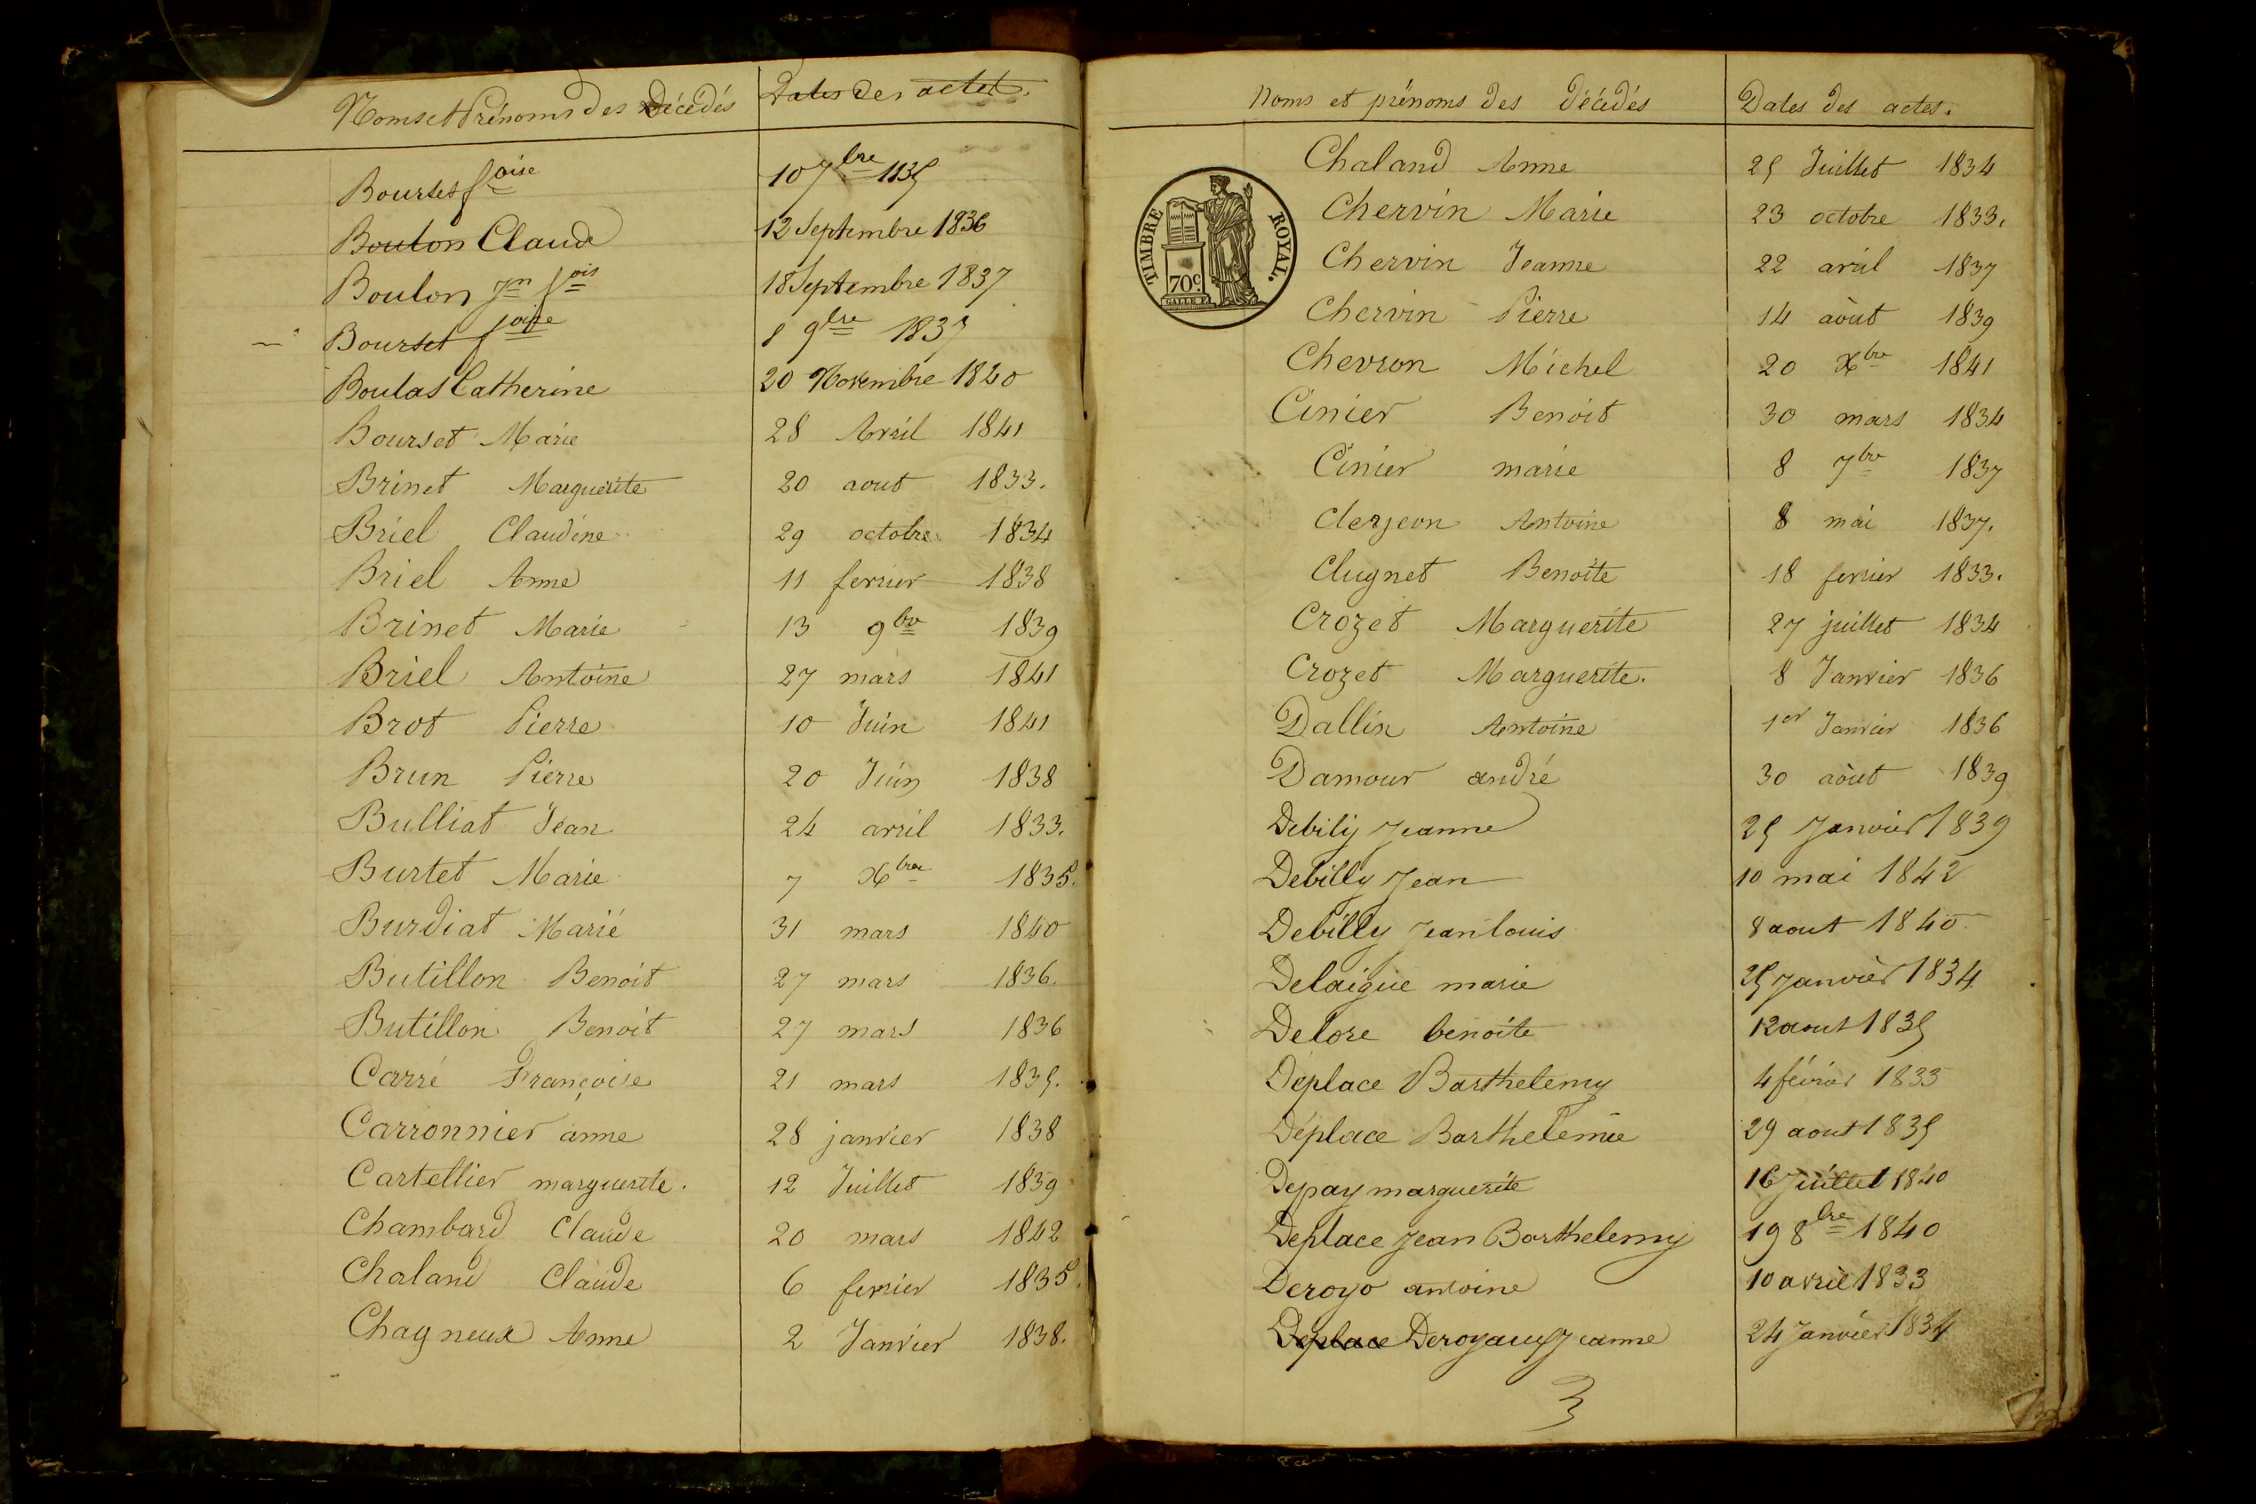 Noms et Prénoms des Décédés Dates des actes.
Bourset foise 10 7bre 1835
Bouton Claude 12 Septembre 1836
Boulon Jn fois 18 Septembre 1837
Bourset foise 8 9bre 1837
Boulas Catherine 20 Novembre 1840
Bourset Marie 28 Avril 1841
Brinet Marguerite 20 aout 1833.
Briel Claudine 29 octobre 1834
Briel Anne 11 fevrier 1838
Brinet Marie 13 9bre 1839
Briel Antoine 27 mars 1841
Brot Pierre 10 Juin 1841
Brun Pierre 20 Juin 1838
Bulliat Jean 24 avril 1833.
Burtet Marie 7 Xbre 1835.
Burdiat Marie 31 mars 1840
Butillon Benoit 27 mars 1836.
Butillon Benoit 27 mars 1836
Carré Françoise 21 mars 1835.
Carronnier anne 28 janvier 1838
Cartellier marguerite. 12 Juillet 1839
Chambard Claude 20 mars 1842
Chaland Claude 6 fevrier 1835.
Chagneux Anne 2 Janvier 1838.
Noms et prénoms des décédés Dates des actes.
TIMBRE ROYAL.
70c
Chaland Anne 25 Juillet 1834
Chervin Marie 23 octobre 1833.
Chervin Jeanne 22 avril 1837
Chervin Pierre 14 août 1839
Chevron Michel 20 Xbre 1841
Cinier Benoit 30 mars 1834
Cinier marie 8 7bre 1837
Clerjeon Antoine 8 mai 1837.
Clugnet Benoite 18 fevrier 1833.
Crozet Marguerite 27 juillet 1834
Crozet Marguerite. 8 Janvier 1836
Dallin Antoine 1er Janvier 1836
Damour andré 30 août 1839
Debily Jeanne 25 Janvier 1839
Debilly Jean 10 mai 1842
Debilly Jean louis 8 aout 1840
Delaigue marie 25 Janvier 1834
Delore benoite 12 aout 1835
Deplace Barthelemy 4 février 1833
Déplace Barthelemie 29 aout 1835
Depay marguerite 16 Juillet 1840
Deplace Jean Barthelemy 19 8bre 1840
Deroyo antoine 10 avril 1833
Deplace Deroyaux Jeanne 24 Janvier 1834
3